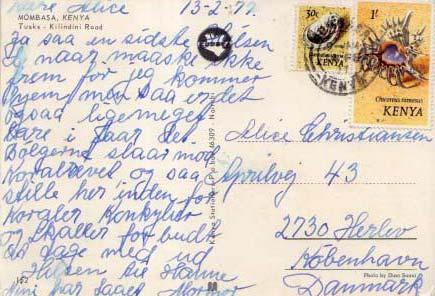 Kære Alice 13-2-77.
MOMBASA, KENYA
Tusks - Kilindini Road
ja saa en sidste hilsen
og naar maaske ikke
frem før jeg kommer
hjem men saa er det
ogsaa ligemeget
bare i faar det
Bølgerne slaar mod
Koralrevet og saa
stille her inden for
Koraler Konkylier
og skaller for budt
at tage med ud
Hilsen
har
152
30c
KENYA
1/-
KENYA
KENYA
Alice Christiansen
Aprilvej 43
2730 Herlev
København
Danmark
Photo by